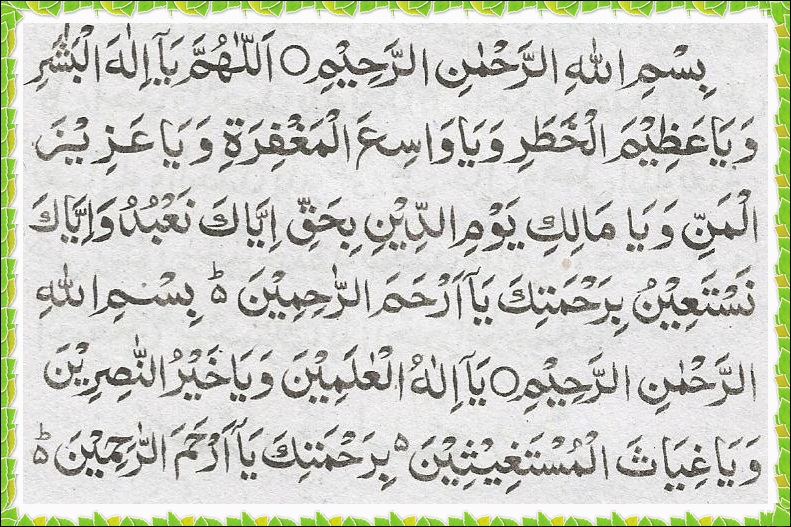 بِسْمِ اللهِ الرَّحْمٰنِ الرَّحِيْمِ○ اَللّٰهُمَّ يَآ اِلٰهَ الْبَشَرِ
وَيَا عَظِيْمَ الْخَطَرِ وَيَا وَاسِعَ الْمَغْفِرَةِ وَيَا عَزِيْزَ
الْمَنِّ وَيَا مَالِكِ يَوْمِ الدِّيْنِ بِحَقِّ اِيَّاكَ نَعْبُدُ وَاِيَّاكَ
نَسْتَعِيْنُ بِرَحْمَتِكَ يَآ اَرْحَمَ الرّٰحِمِيْنَ ۵ بِسْمِ اللهِ
الرَّحْمٰنِ الرَّحِيْمِ○ يَآ اِلٰهُ الْعٰلَمِيْنَ وَيَا خَيْرُ النّٰصِرِيْنَ
وَيَا غِيَاثَ الْمُسْتَغِيْثِيْنَ ۵ بِرَحْمَتِكَ يَآ اَرْحَمَ الرّٰحِمِيْنَ ۵